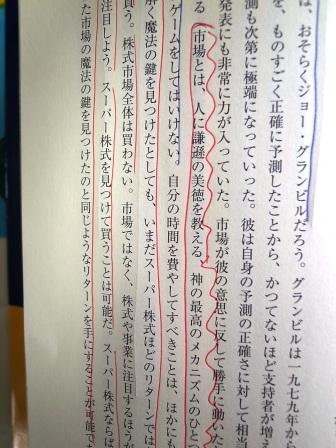 は、おそらくジョー・グランビルだろう。グランビルは一九七九年か
を、ものすごく正確に予測したことから、かつてないほど支持者が増
測も次第に極端になっていった。彼は自身の予測の正確さに対して相当
発表にも非常に力が入っていた。市場が彼の意思に反して勝手に動いた
る 市場とは、人に謙遜の美徳を教える、神の最高のメカニズムのひと
ゲームをしてはいけない。自分の時間を費やしてすべきことは、ほかにも
解く魔法の鍵を見つけたとしても、いまだスーパー株式ほどのリターンでは
買う。株式市場全体は買わない。市場ではなく、株式や事業に注目するほうが
注目しよう。スーパー株式を見つけて買うことは可能だ。スーパー株式ならば
た市場の魔法の鍵を見つけたのと同じようなリターンを手にすることが可能で